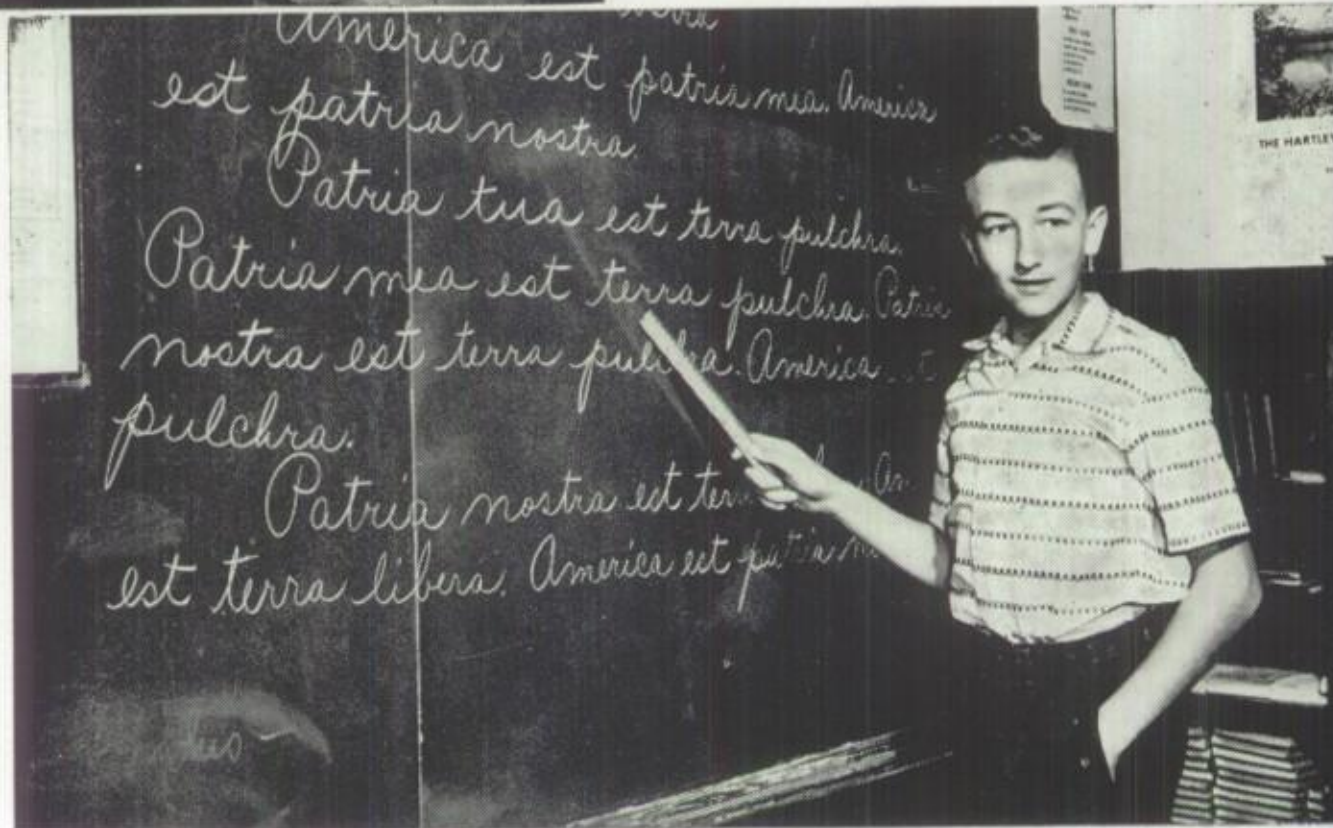 America est patria mea. America
est patria nostra.
Patria tua est terra pulchra.
Patria mea est terra pulchra. Patria
nostra est terra pulchra. America est
pulchra.
Patria nostra est terra
est terra libera. America est patria
THE HARTLEY